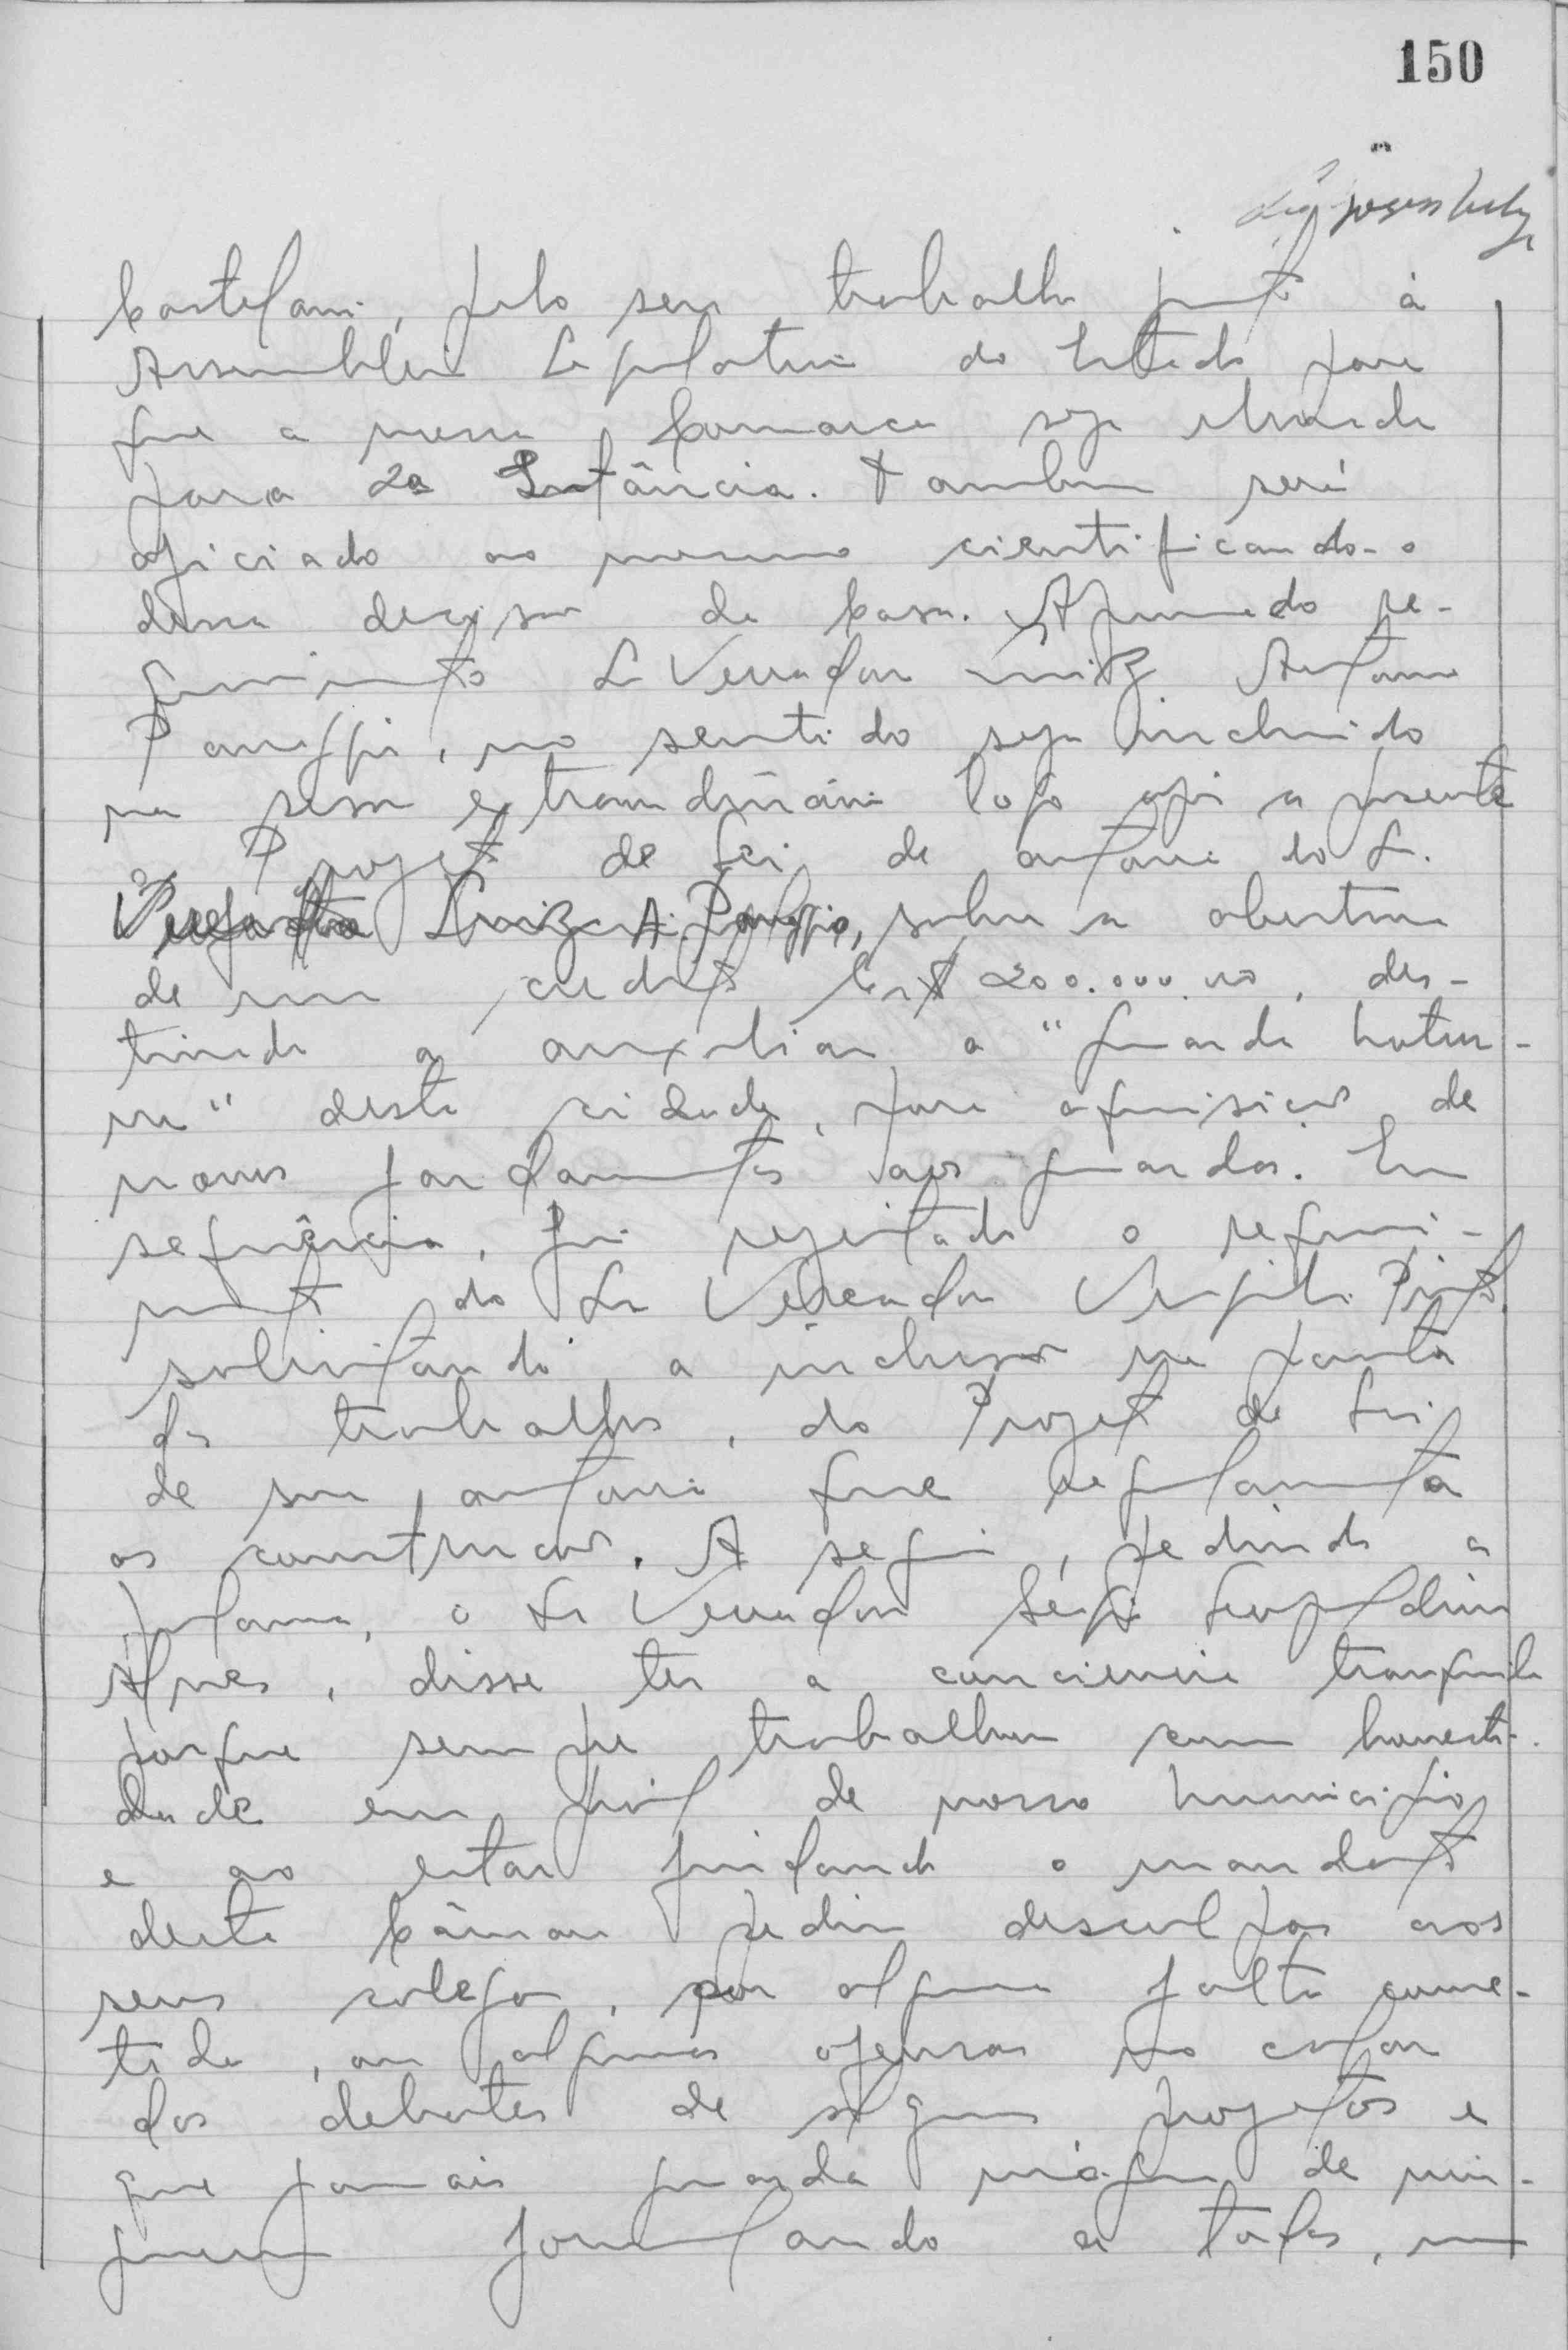 150
Castelani, pelo seu trabalho junto à
Assembleia Legislativa do Estado para
que a nossa Comarca seja elevada
para 2a Instância. Também será
oficiado ao mesmo cientificando-o
dessa decisão da Casa. Aprovado re-
querimento Sr Vereador Luiz Antonio
, no sentido seja incluido
na sessão extraordinária logo após a presente
o Projeto de Lei de autoria do Sr.
Luiz A. sobre a abertura
de um credito Cr$ 200.000,00, des-
tinado a auxiliar a "Guarda Notur-
na" desta cidade, para aquisição de
novos fardamentos aos guardas. Em
sequência, foi rejeitado o requeri-
mento do Sr Vereador Virgilio Pinto,
solicitando a inclusão na pauta
dos trabalhos, do Projeto de Lei
de sua autoria que regulamenta
as construções. A seguir, pedindo a
palavra, o Sr Vereador Sérgio Leopoldino
Alves, disse ter a conciencia tranquila
porque sempre trabalhou com honesti-
dade em prol de nosso municipio
e ao estar findando o mandato
desta Câmara pedia desculpas aos
seus colegas, por alguma falta come-
tida, ou algumas ofensas no calor
dos debates de alguns projetos e
que jamais guarda mágoa de nin-
guem formulando a todos, um